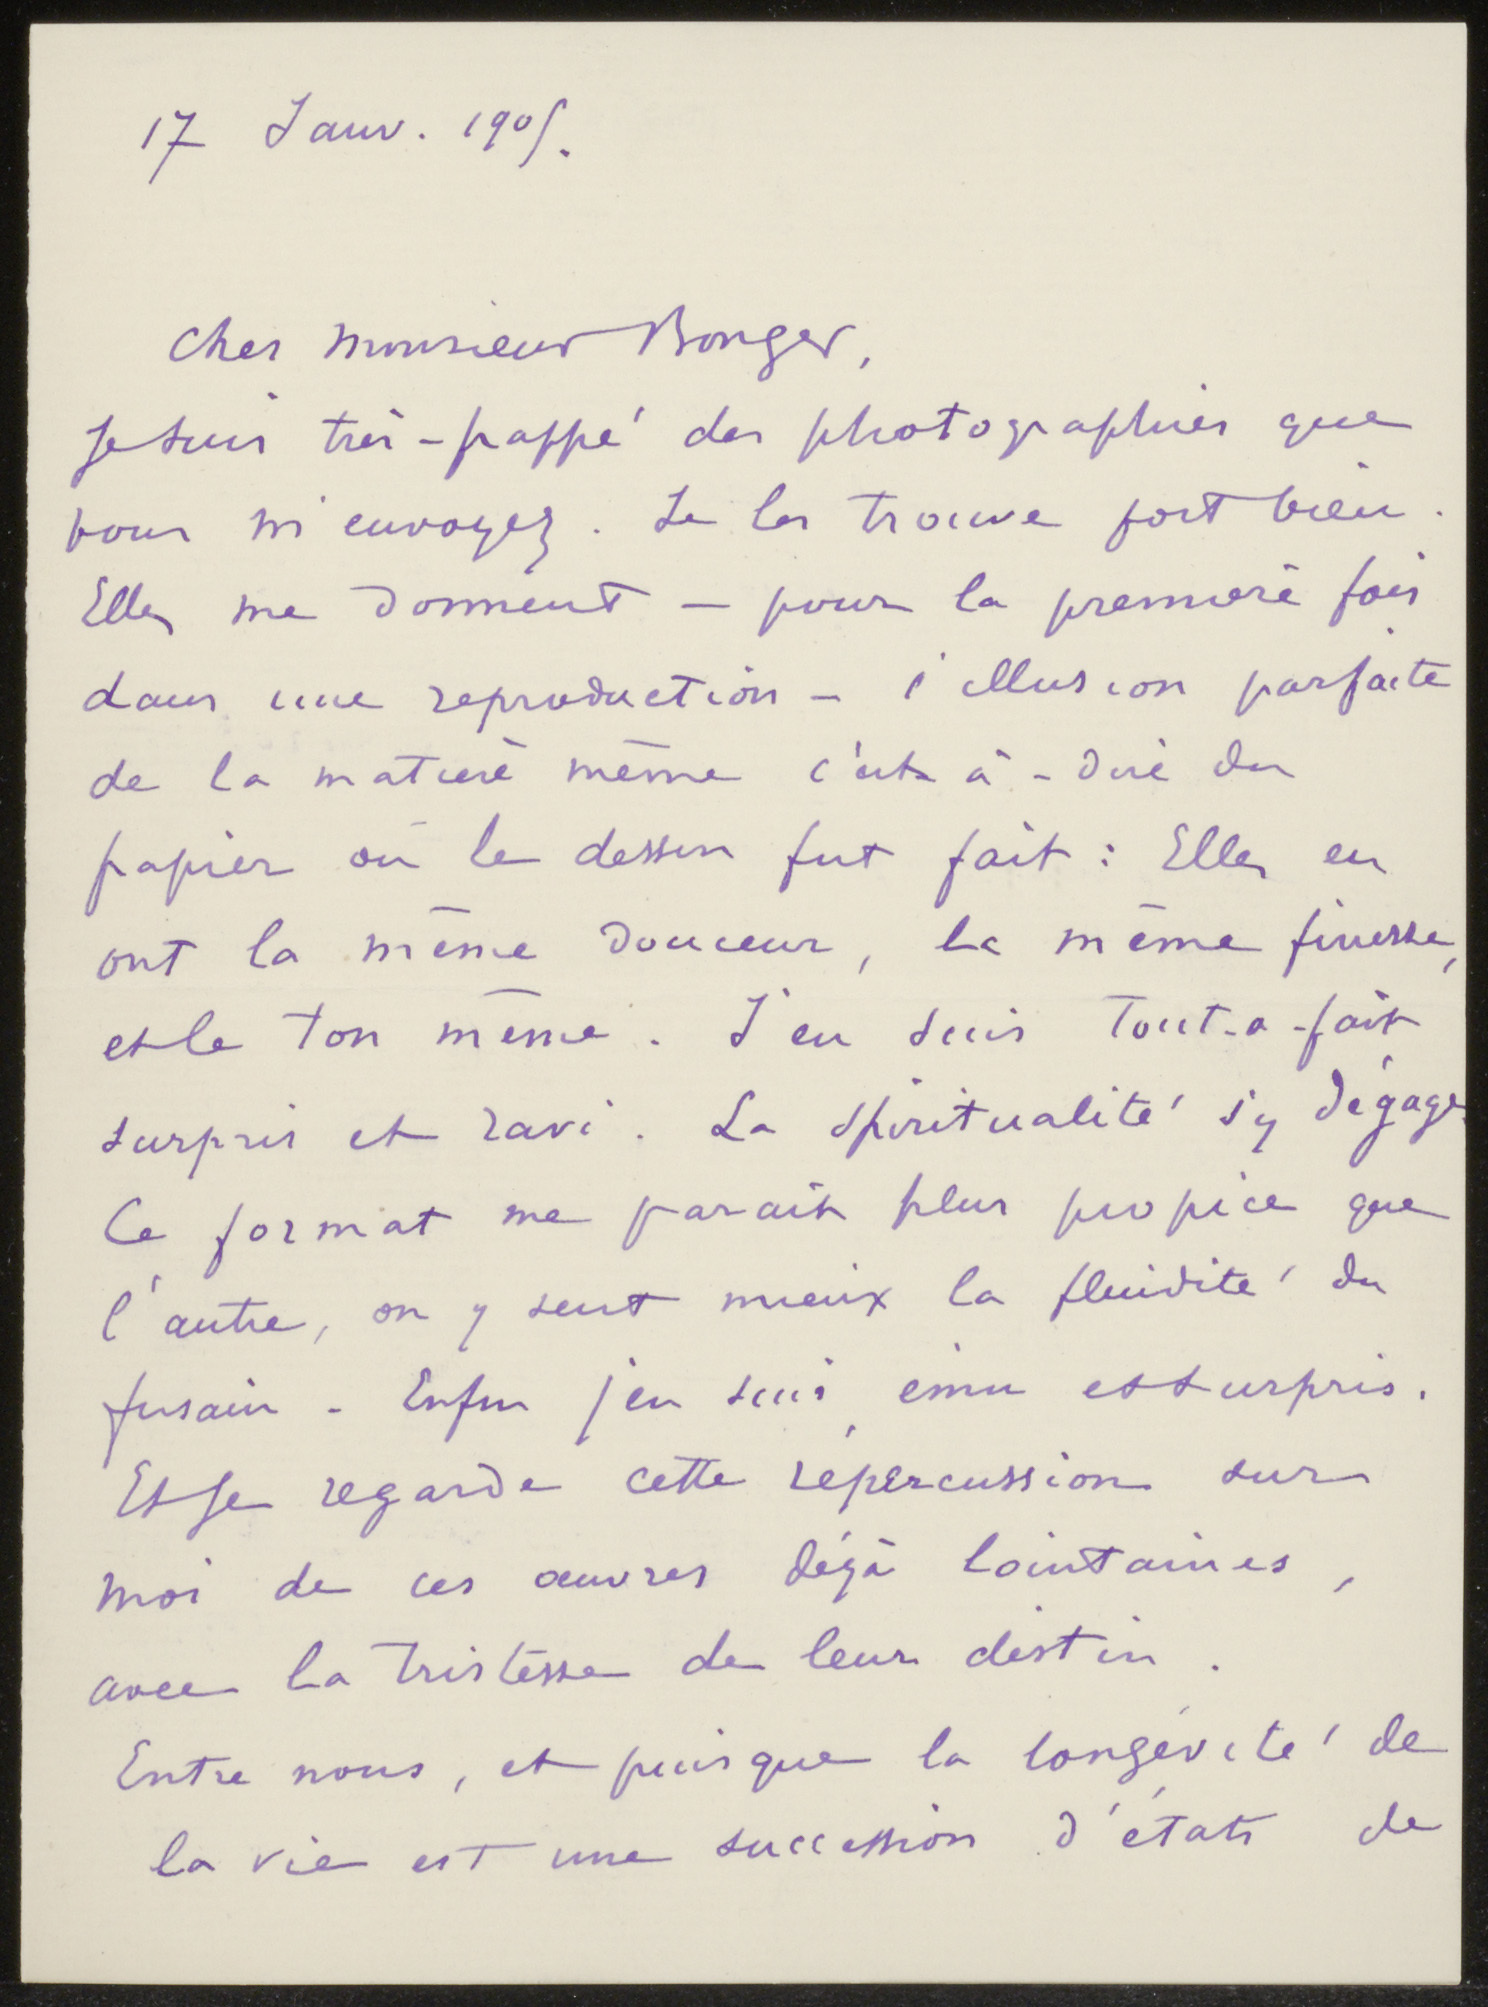 17 Janv. 1905.
Cher Monsieur Bonger,
Je suis très-frappé des photographies que
vous m'envoyez. Je les trouve fort bien.
Elles me donnent — pour la première fois
dans une reproduction — l'illusion parfaite
de la matière même c'est à-dire du
papier où le dessin fut fait : Elles en
ont la même douceur, la même finesse,
et le ton même. J'en suis tout-a-fait
surpris et ravi. La spiritualité s'y dégage.
Ce format me parait plus propice que
l'autre, on y sent mieux la fluidité du
fusain - Enfin j'en suis ému et surpris.
Et Je regarde cette répercussion sur
moi de ces œuvres déjà lointaines,
avec la tristesse de leur destin.
Entre nous, et puisque la longévité de
la vie est une succession d'états de